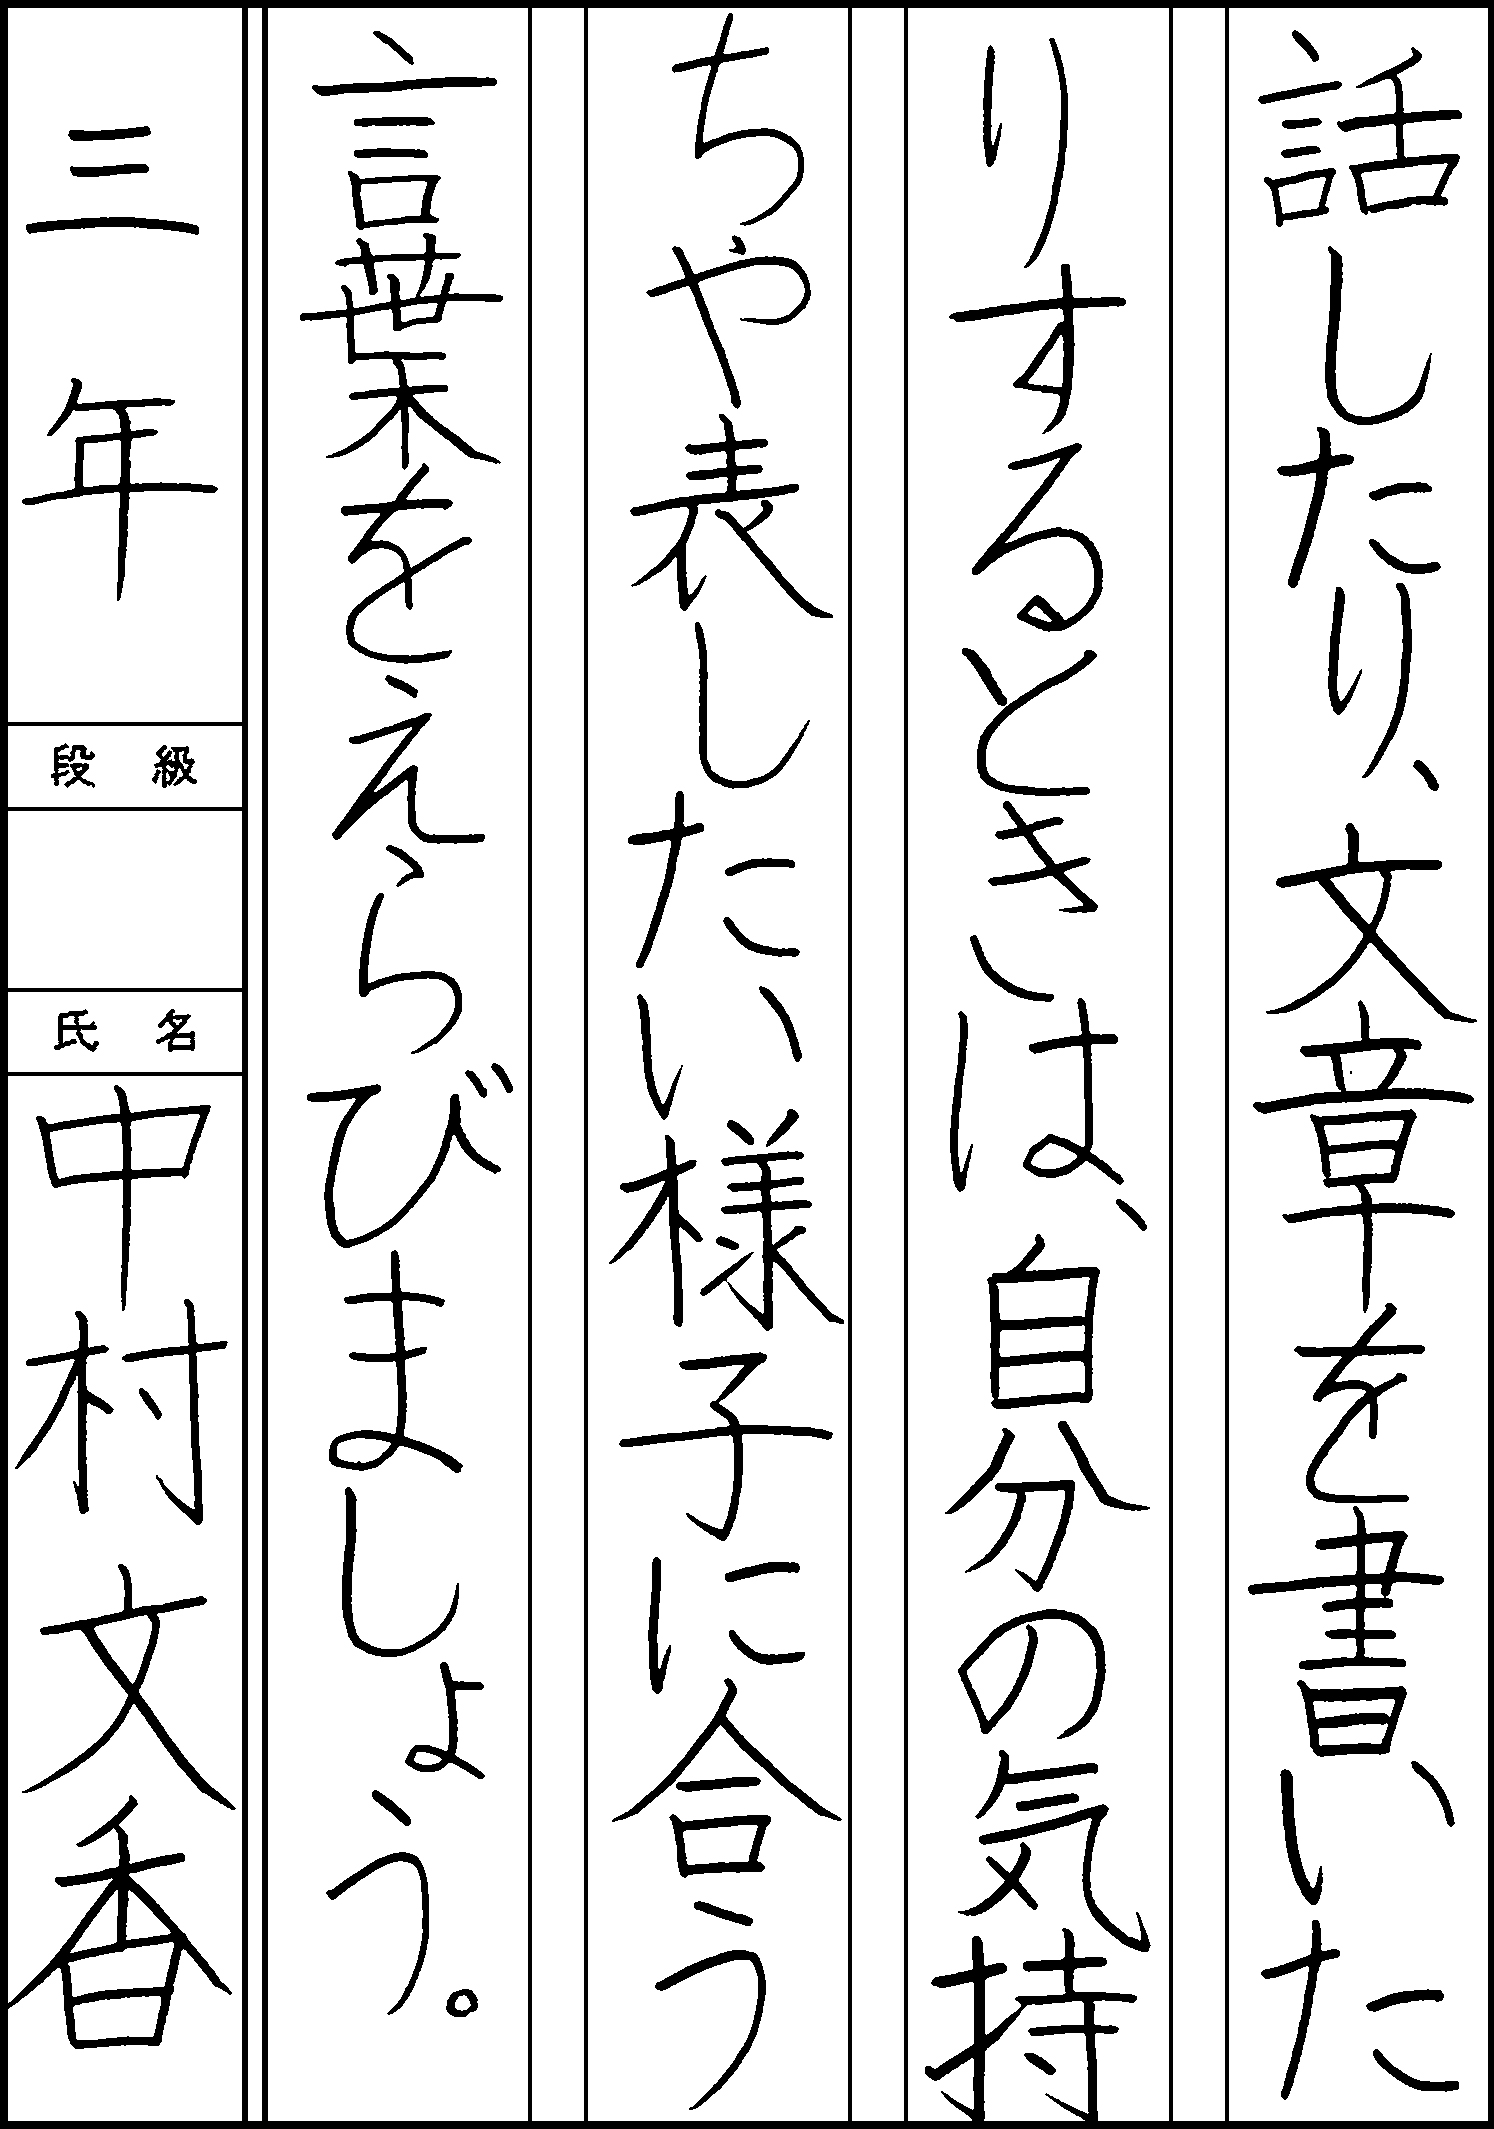 話したり、文章を書いた
りするときは、自分の気持
ちや表したい様子に合う
言葉をえらびましょう。
三年
段級
氏名
中村文香